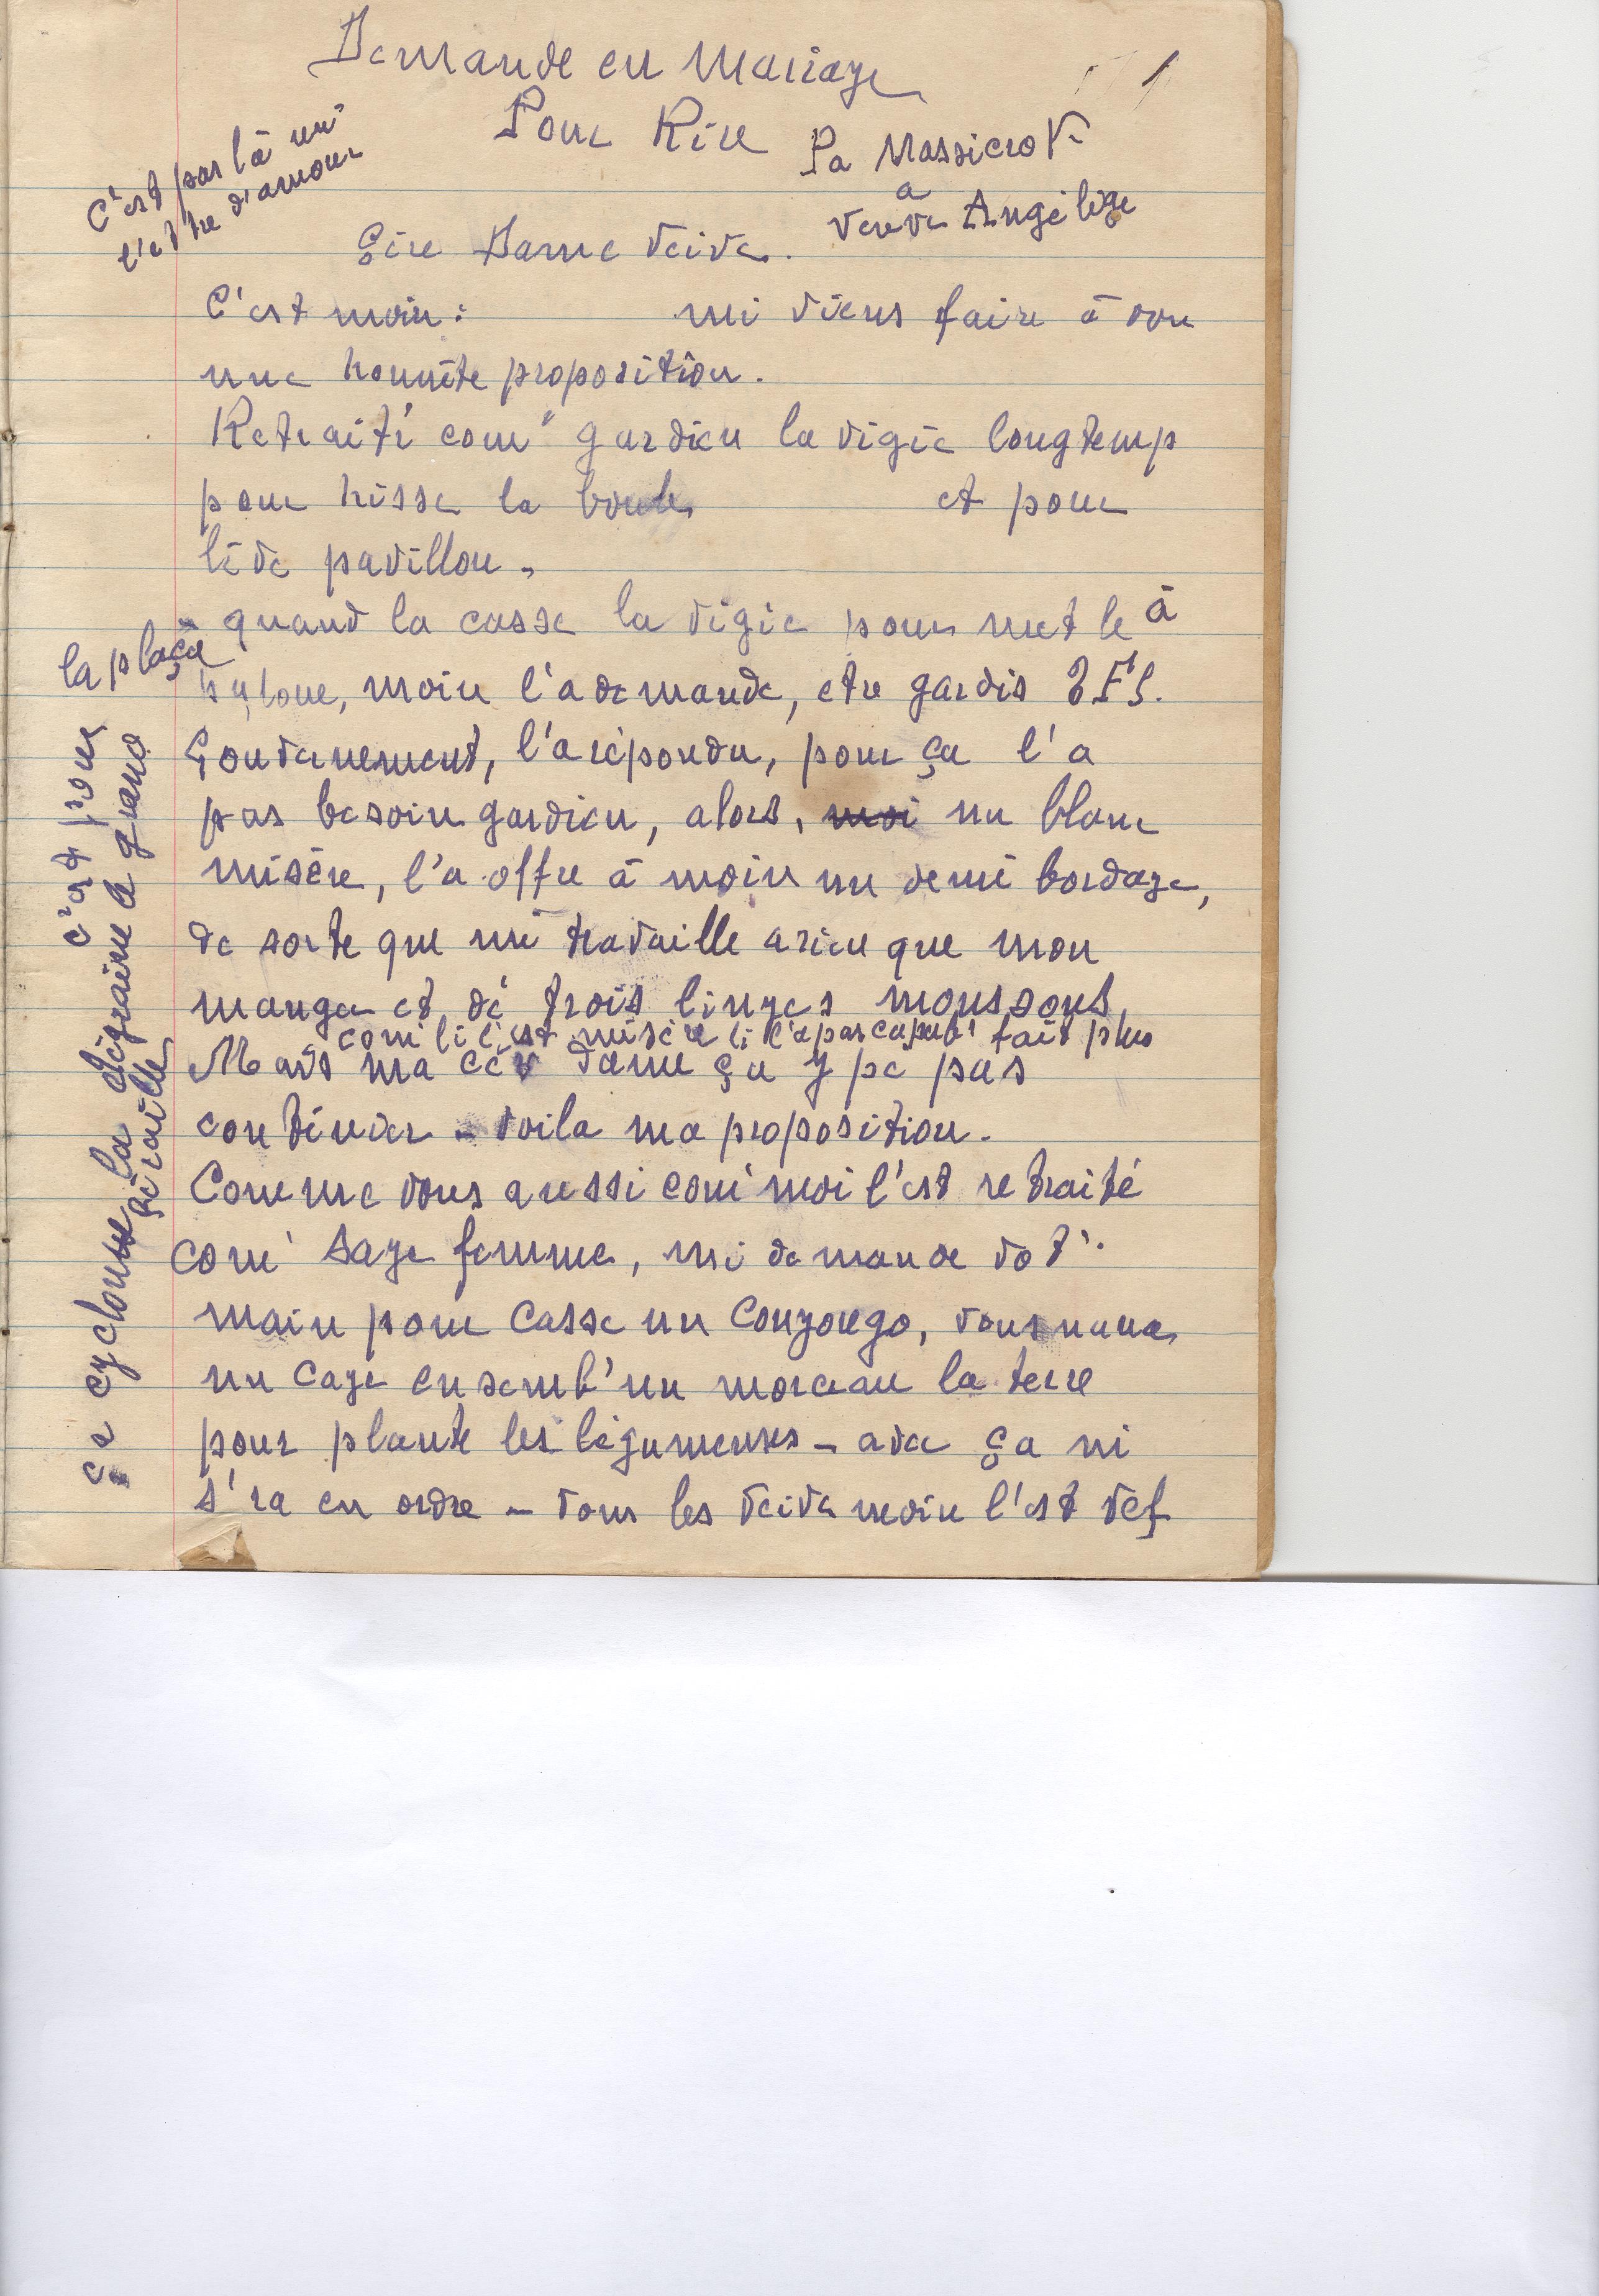 Demande en Mariage
Pour Rire
Pa Massicrot
a
veuve Angélique
C'est pas là un'
l'ettre d'amour
Çère Dame Veive.
C'est moin : mi viens faire à vou
une honnête proposition.
Retraité com' gardien la vigie longtemp
pour hisse la boule et pour
lève pavillon.
quand la casse la vigie pour met le à
la place
moin l'a demande, etre gardis TFS.
Gouvernement, l'a répondu, pour ça l'a
pas besoin gardien, alors, moi un blanc
misère, l'a offre à moin un demi bordage,
de sorte que mi travaille arien que mon
manger et dé trois linges moussous,
com' li l'est misère li l'a pas capab' fait plus
Mais ma cér Dame ça y pe pas
continier - voila ma proposition.
Comme vous aussi com' moi l'est retraité
com' sage femme, mi demande vot'
main pour casse un Conyongo, vous nana
un cage ensemb' un morceau la terre
pour plante les légumeuses - avec ça ni
s'ra en ordre - vous les veive moin l'est vef
ça cyclonne la
c'est pour
le graine